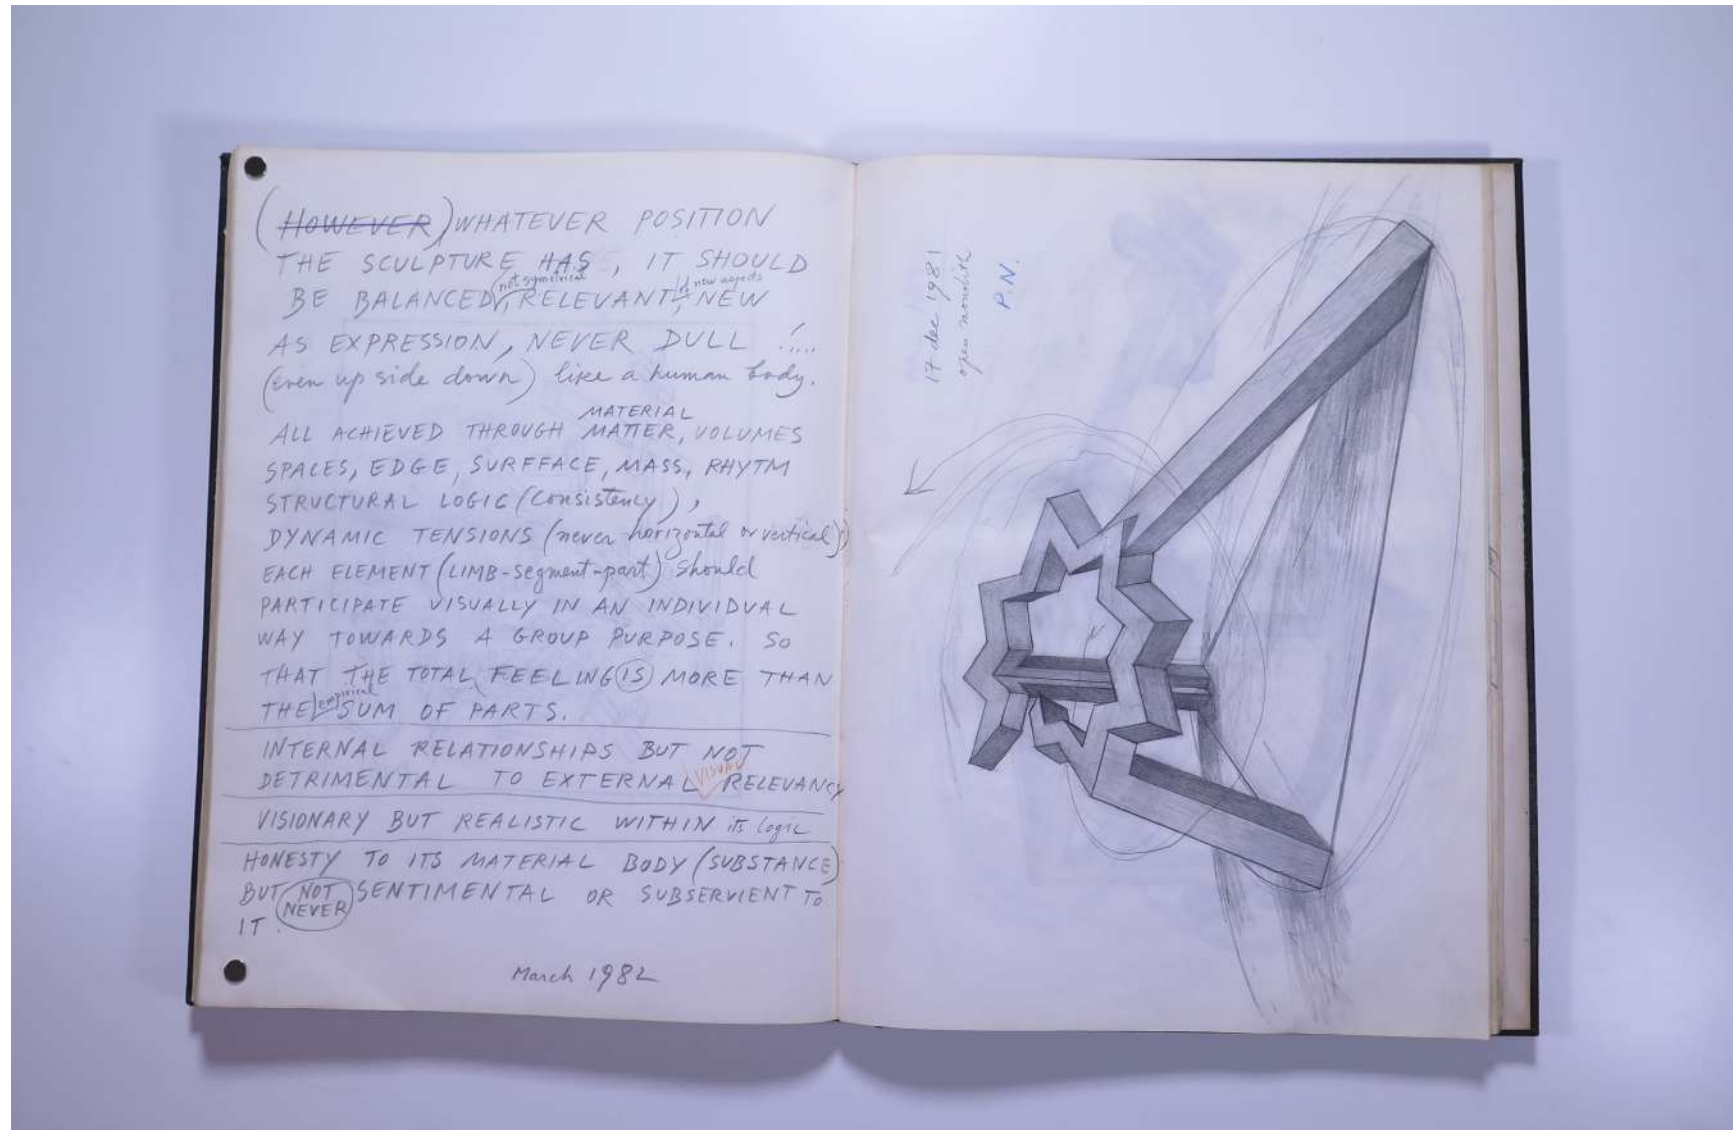 (HOWEVER) WHATEVER POSITION
THE SCULPTURE HAS, IT SHOULD
not symetrical of new aspects
BE BALANCED, RELEVANT, NEW
AS EXPRESSION, NEVER DULL !....
(even up side down) like a human body.
MATERIAL
ALL ACHIEVED THROUGH MATTER, VOLUMES
SPACES, EDGE, SURFFACE, MASS, RHYTM
STRUCTURAL LOGIC (Consistency),
DYNAMIC TENSIONS (never horizontal or vertical))
EACH ELEMENT (LIMB-segment-part) should
PARTICIPATE VISUALLY IN AN INDIVIDUAL
WAY TOWARDS A GROUP PURPOSE. SO
THAT THE TOTAL FEELING IS MORE THAN
empirical
THE SUM OF PARTS.
INTERNAL RELATIONSHIPS BUT NOT
VISUAL
DETRIMENTAL TO EXTERNAL RELEVANCY
VISIONARY BUT REALISTIC WITHIN its logic
HONESTY TO ITS MATERIAL BODY (SUBSTANCE)
BUT NOT SENTIMENTAL OR SUBSERVIENT TO
NEVER
IT.
March 1982
17 dec 1981
open monolith
P.N.